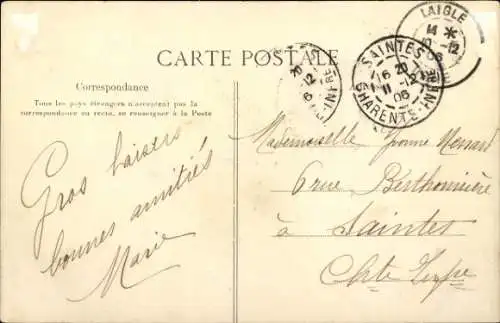 LAIGLE
14 *
10-12
06
CARTE POSTALE
SAINTES
16 20
11-12
06
CHARENTE-INFRE
20
12
6
Correspondance
Tous les pays étrangers n'acceptent pas la
correspondance au recto, se renseigner à la Poste
Gros baisers
bonnes amitiés
Marie
Mademoiselle Yvonne
6 rue Berthonnière
à Saintes
Chte Infre